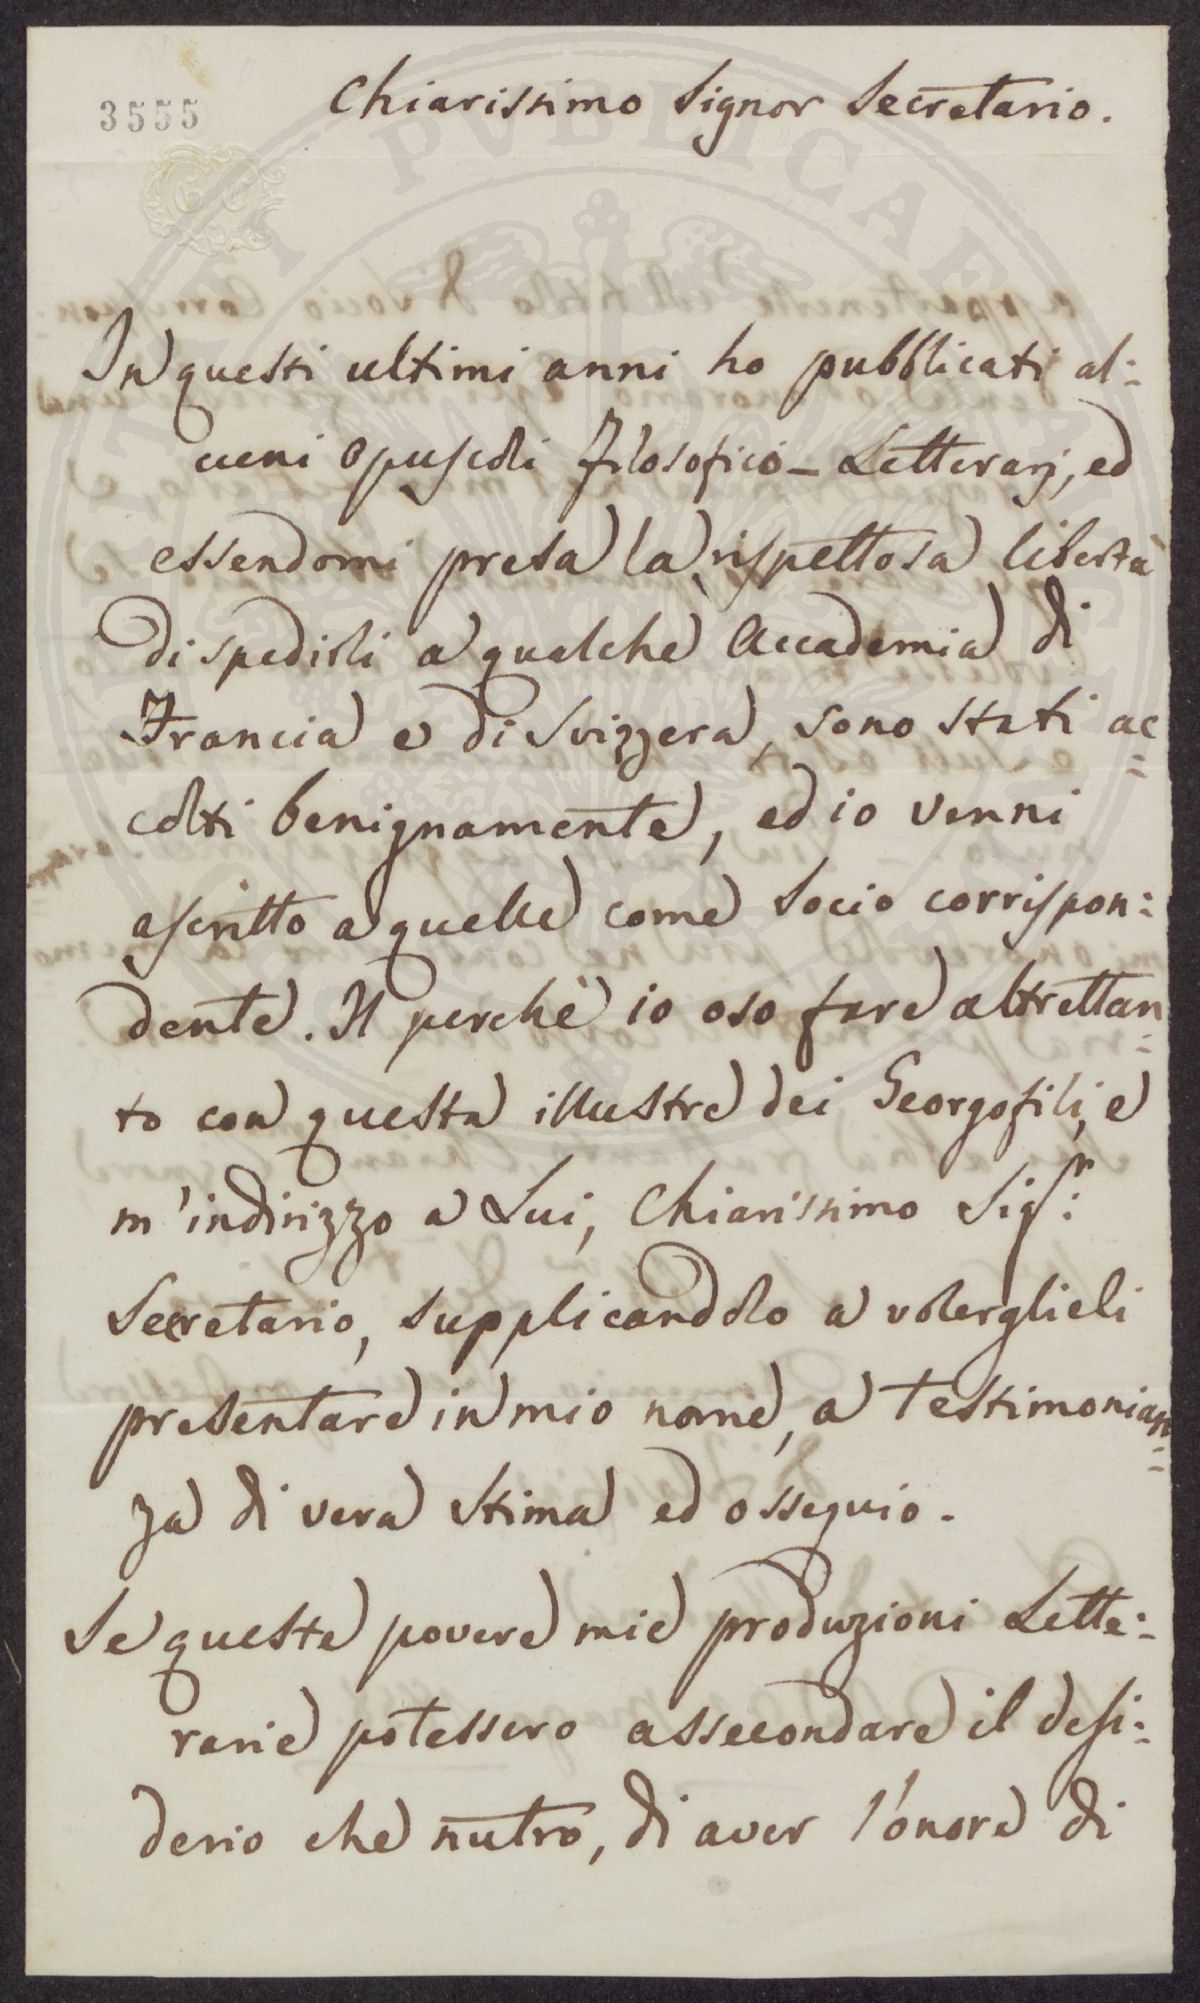 3555
Chiarissimo Signor Secretario.
In questi ultimi anni ho pubblicati al:
cuni opuscoli filosofico-Letterarj, ed
essendomi presa la rispettosa libertà
di spedirli a qualche Accademia di
Francia e di Svizzera, sono stati ac=
colti benignamente, ed io venni
ascritto a quelle come Socio corrispon:
dente. Il perchè io oso fare altrettan=
to con questa illustre dei Georgofili, e
m'indirizzo a Lui, Chiarissimo Sigr:
Secretario, supplicandolo a volerglieli
presentare in mio nome, a testimonian=
za di vera stima ed ossequio.
Se queste povere mie produzioni Lette:
rarie potessero assecondare il desi:
derio che nutro, di aver l'onore di